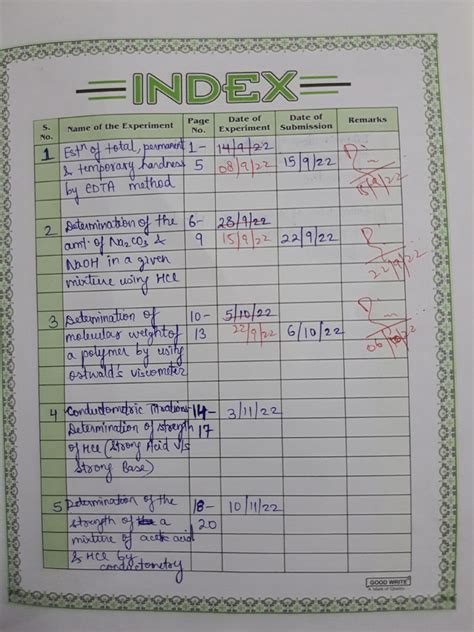 INDEX
S. No. Name of the Experiment Page No. Date of Experiment Date of Submission Remarks
1 Estn of total, permanent 1- 14/9/22
& temporary hardness 5 08/9/22 15/9/22
by EDTA method 15/9/22
2 Determination of the 6- 28/9/22
amt. of Na2CO3 & 9 15/9/22 22/9/22
NaOH in a given 22/9/22
mixture using HCl
3 Determination of 10- 5/10/22
molecular weight of 13 22/9/22 6/10/22
a polymer by using 06/10/22
ostwald's viscometer
4 Conductometric Titrations- 14- 3/11/22
Determination of strength 17
of HCl (Strong Acid V/s
Strong Base)
5 Determination of the 18- 10/11/22
strength of a 20
mixture of acetic acid
& HCl by
conductometry
GOOD WRITE
A Mark of Quality